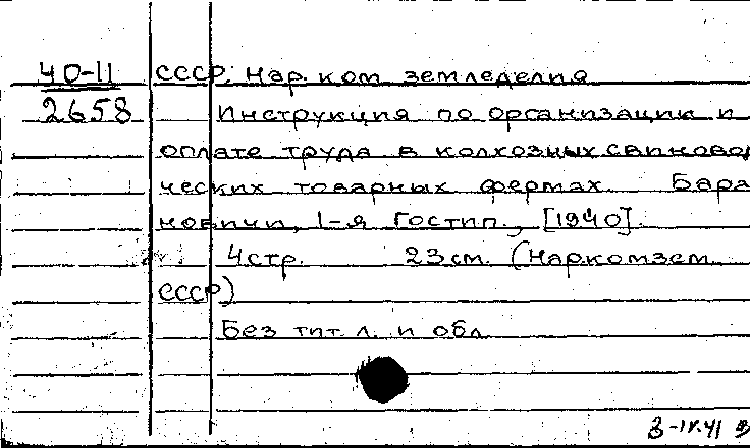 40-11 СССР, Нар. ком. земледелия
2658 Инструкция по организации и
оплате труда в колхозных свиновод
ческих товарных фермах. Бара
новичи, 1-я Гостип., [1940].
4 стр. 23 см. (Наркомзем
СССР)
Без тит. л. и обл.
3-IV.41